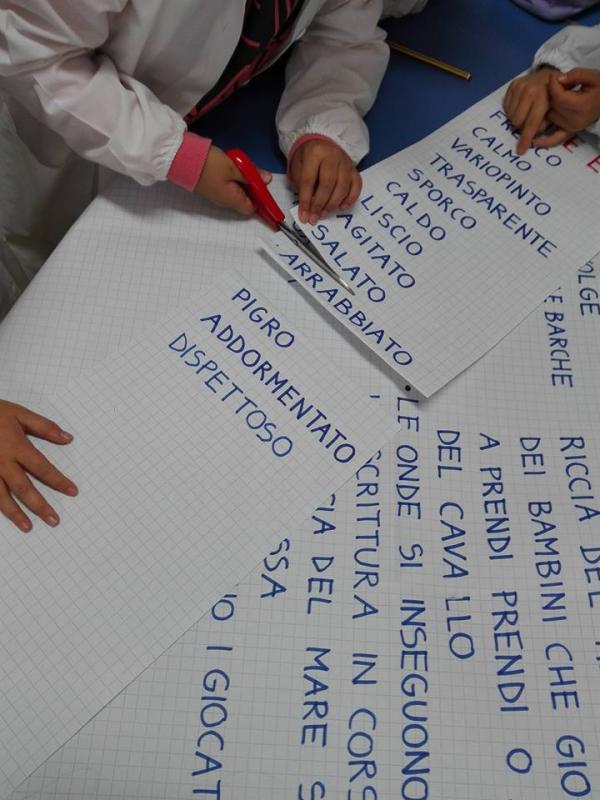 CALMO
VARIOPINTO
TRASPARENTE
SPORCO
CALDO
LISCIO
AGITATO
SALATO
ARRABBIATO
PIGRO
ADDORMENTATO
DISPETTOSO
OLGE
E BARCHE
RICCIA DEL
DEI BAMBINI CHE GIO
A PRENDI PRENDI O
DEL CAVALLO
LE ONDE SI INSEGUONO
SCRITTURA IN CORS
IA DEL MARE S
SSA
O I GIOCAT